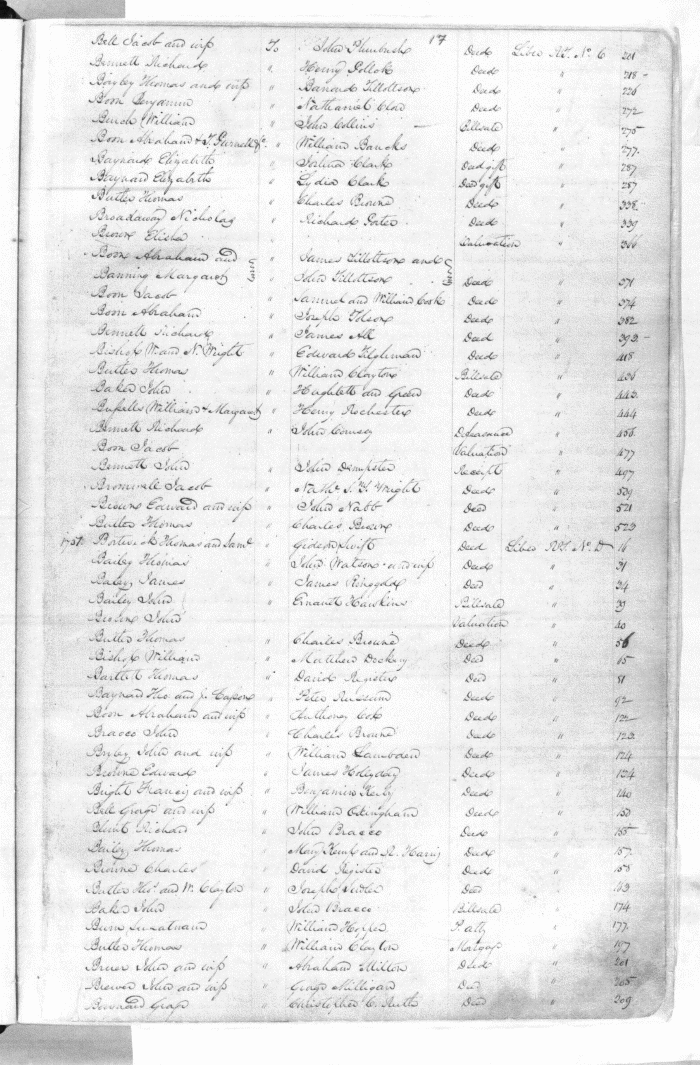 17
Bell Jacob and wife To John Plumbush Deed Liber RT. No. C 201
Bennett Richard " Henry Pollok Deed " 218
Bayley Thomas and wife " Barnard Tillottson Deed " 226
Boon Benjamin " Nathaniel Clod Deed " 272
Burch William " John Collins Billsale " 275
Boon Abraham & J. Garnett &c. " William Bancks Deed " 277
Baynard Elizabeth " Clark Deed gift " 287
Baynard Elizabeth " Lydia Clark Deed gift " 287
Butler Thomas " Charles Browne Deed " 338
Broadaway Nicholas " Richard Porter Deed " 339
Brown Elisha Valuation " 366
Boon Abraham and " James Tillottson and
Banning Margaret wife " John Tillottson wife Deed " 371
Boon Jacob " Samuel and William Cook Deed " 374
Boon Abraham " Joseph Tolson Deed " 382
Bennett Richard " James All Deed " 392
Bishop W. and N. Wright " Edward Tilghman Deed " 418
Butler Thomas " William Clayton Billsale " 436
Baker John " Hughlett and Green Deed " 443
William & Margaret " Henry Rochester Deed " 444
Bennett Richard " John Comeg " 456
Boon Jacob Valuation " 477
Bennett John " John Dempster Receipt " 497
Bromwell Jacob " Nathl. S. T. Wright Deed " 509
Brown Edward and wife " John Nabb Deed " 521
Butler Thomas " Charles Brown Deed " 523
1751 Bostwick Thomas and Saml. " Gideon Swift Deed Liber RT. No. D 16
Bailey Thomas " John Watson and wife Deed " 31
Baley James " James Ringgold Deed " 34
Bailey John " Ernault Hawkins Billsale " 39
Brown John Valuation " 40
Butler Thomas " Charles Browne Deed " 56
Bishop William " Matthew Dockery Deed " 65
Bartlett Thomas " David Register Deed " 81
Baynard Tho and J. Casson " Peter Russum Deed " 92
Boon Abraham and wife " Anthony Cox Deed " 122
Bracco John " Charles Browne Deed " 123
Bryley John and wife " William Lambden Deed " 124
Browne Edward " James Hollyday Deed " 134
Bright Francis and wife " Benjamin Kerby Deed " 140
Bell George and wife " William Elingham Deed " 150
Blunt Richard " John Bracco Deed " 155
Bailey Thomas " Mary Kent and R. Harris Deed " 157
Browne Charles " David Register Deed " 158
Butler Thos. and W. Clayton " Joseph Deed " 163
Baker John " John Bracco Billsale " 174
William Hopper P. atty " 177
Butler Thomas " William Clayton Mortgage " 197
Bruer John and wife " Abraham Milton Deed " 201
Brewer John and wife " George Milligan Deed " 205
Bernard Grace " Christopher C. Ruth Deed " 209